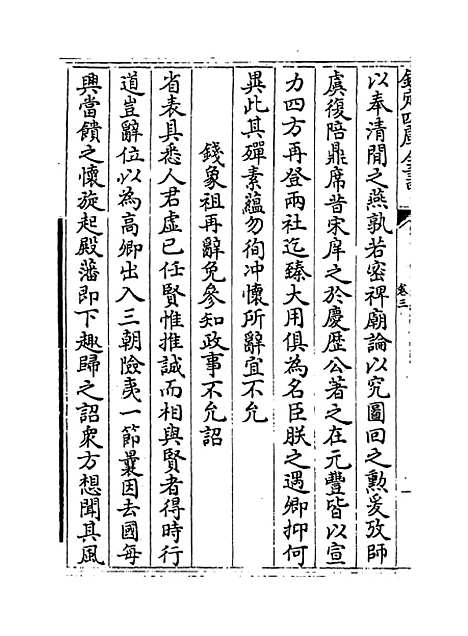 欽定四庫全書
卷三
以奉清閒之燕孰若密禆廟論以究圖回之勲爰攷師
虞復陪鼎席昔宋庠之於慶歴公著之在元豐皆以宣
力四方再登兩社迄臻大用俱為名臣朕之遇卿抑何
異此其殫素蘊勿徇冲懷所辭宜不允
錢象祖再辭免參知政事不允詔
省表具悉人君虚已任賢惟推誠而相與賢者得時行
道豈辭位以為高卿出入三朝險夷一節曩因去國每
興當饋之懷旋起殿藩即下趣歸之詔衆方想聞其風